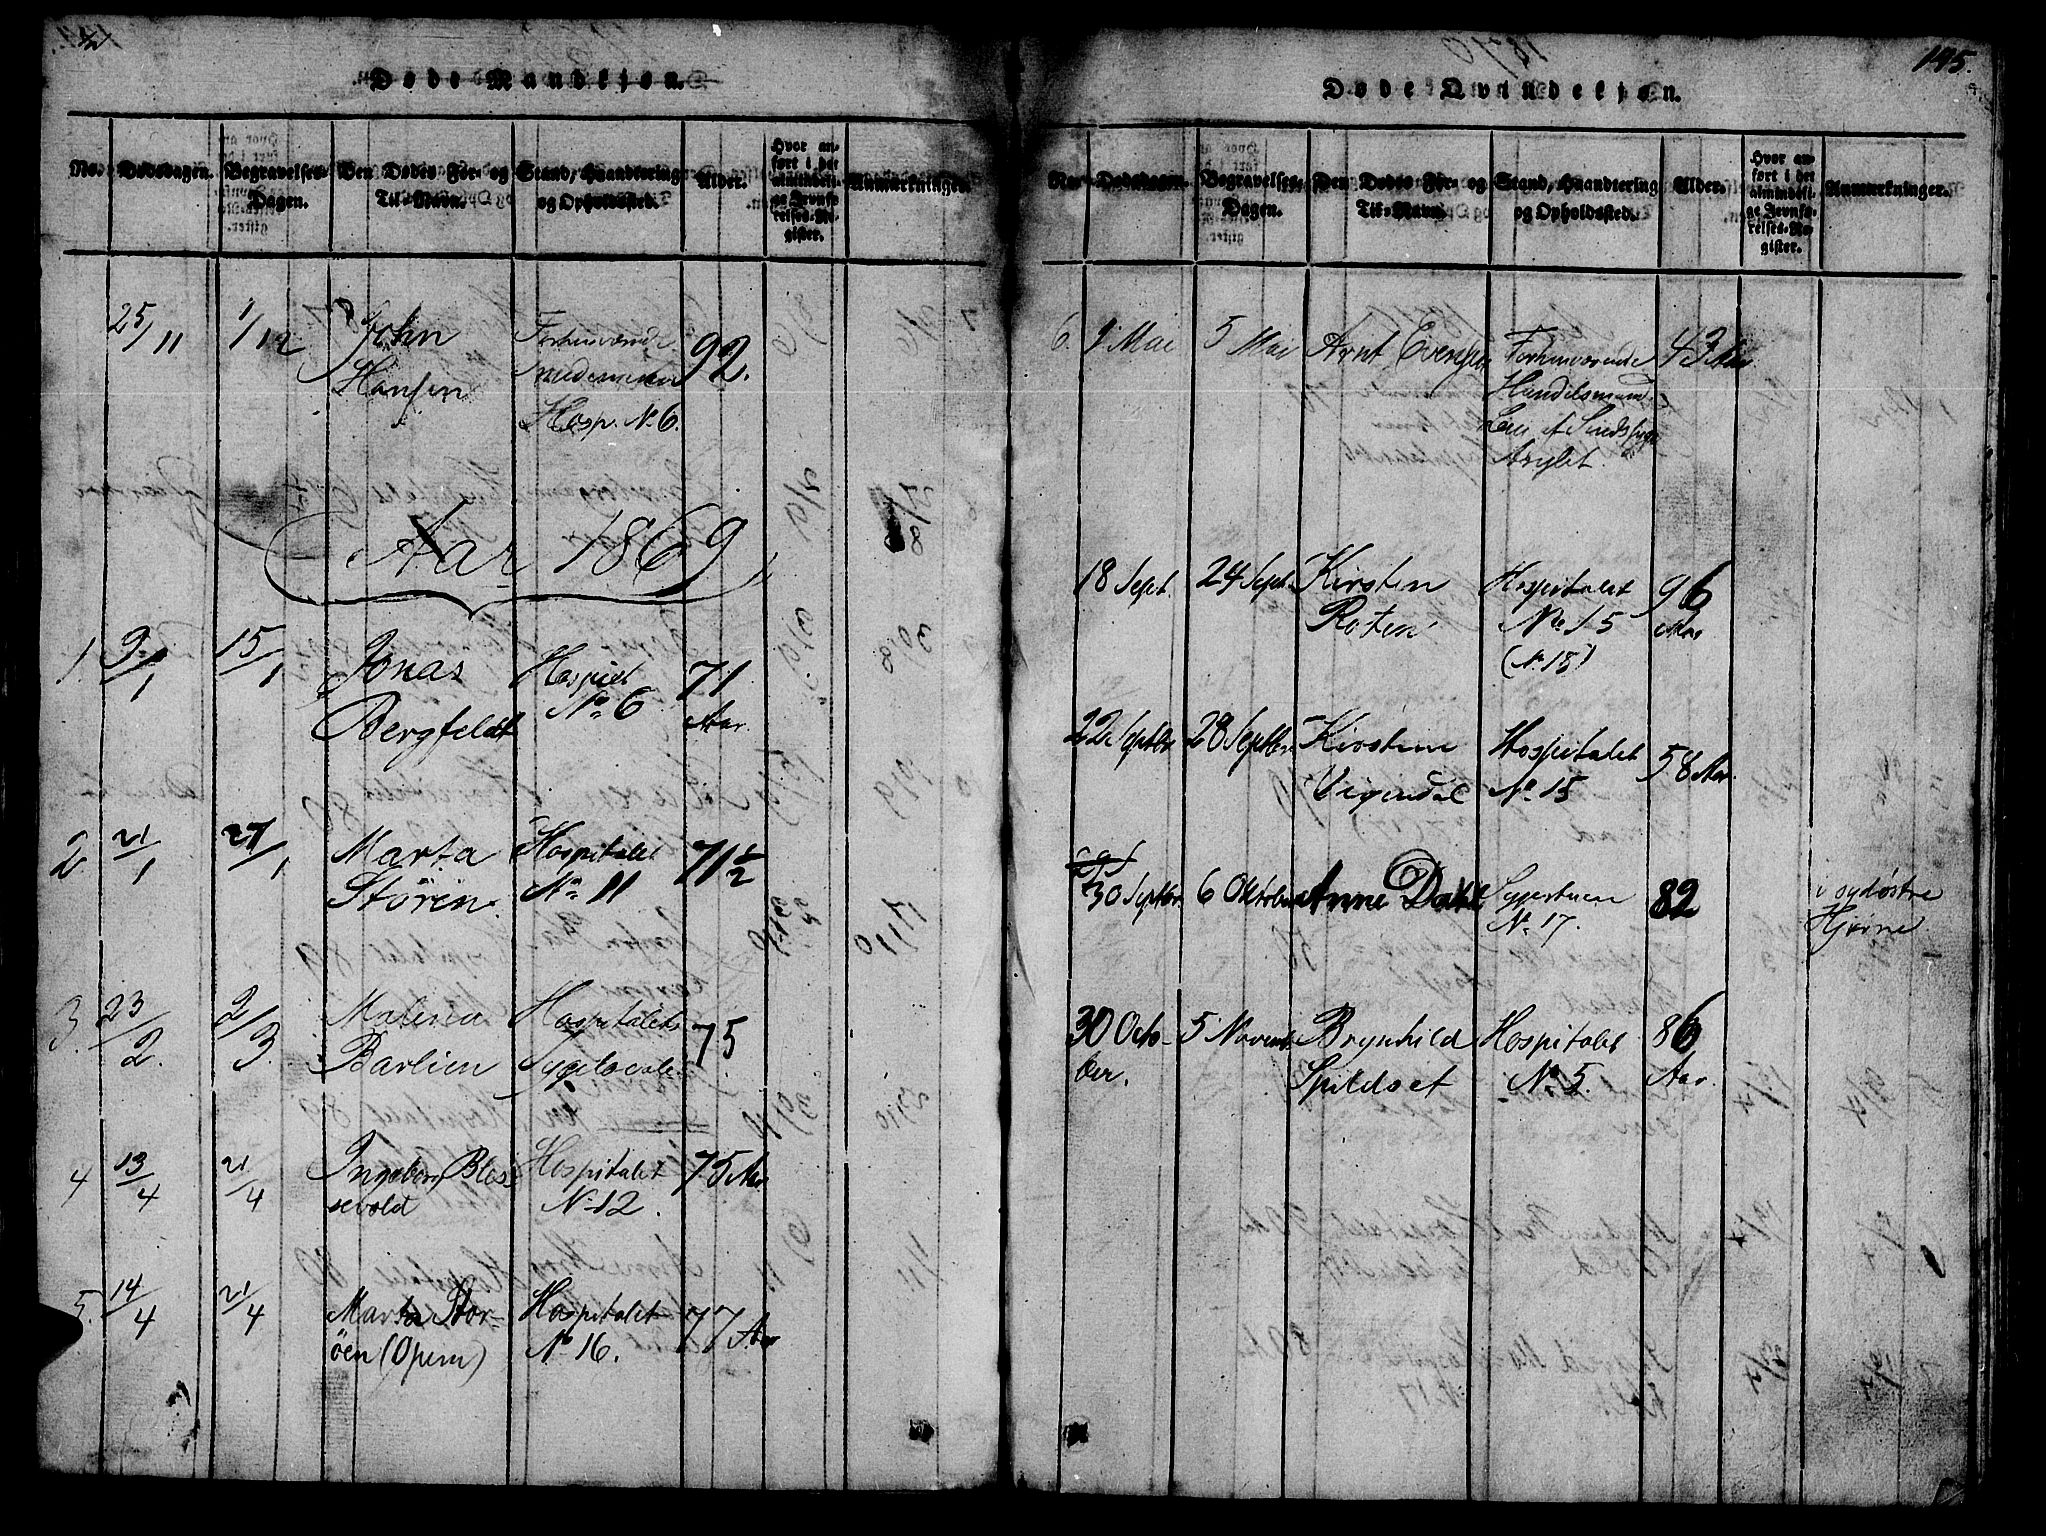 Døde Mandkjøn.
No.
Dødsdagen.
Begravelses-
Dagen.
Den Dødes For- og
Til-Navn.
Stand, Haandtering
og Opholdssted.
Alder.
Hvor an-
ført i det
almindeli-
ge Jevnfø-
relses-Re-
gister.
Anmærkninger.
25/11 1/12 John
Hansen
Hosp. No 6.
92.
Aar 1869
1. 9/1 15/1 Jonas
Bergfeldt
Hospiet
No 6
71
Aar.
2 21/1 27/1 Marta
Stören
Hospitalet
No 11
71 1/2
3. 23/2. 2/3. Malena
Barlien
Hospitalets
75
4 13/4 21/4 Ingeborg Bles-
sevold
Hospitalet
No 12.
75 Aar
5. 14/4 21/4 Marta Stor-
öen (Opem)
Hospitalet
No 16.
77 Aar
195.
Døde Qvindekjøn.
No.
Dødsdagen.
Begravelses-
Dagen.
Den Dødes For- og
Til-Navn.
Stand, Haandtering
og Opholdssted.
Alder.
Hvor an-
ført i det
almindeli-
ge Jevnfø-
relses-Re-
gister.
Anmærkninger.
6. 1 Mai 5 Mai Arnt Evensen
Forhenværende
Handelsmand
af Sindssyge
Asylet.
43 Aar
18 Sept. 24 Sept. Kirsten
Roten
Hospitalet
No 15
(No 18)
96
Aar
22 Septbr 28 Septbr Kirstine
Vigendal
Hospitalet
No 15
58 Aar.
30 Septbr. 6 Oktober Anne Dahl
No 17.
82
i sydöstre
Hjörne
30 Octo-
ber.
5 Novemb. Brynhild
Spildset
Hospitalet
No 5.
86
Aar.